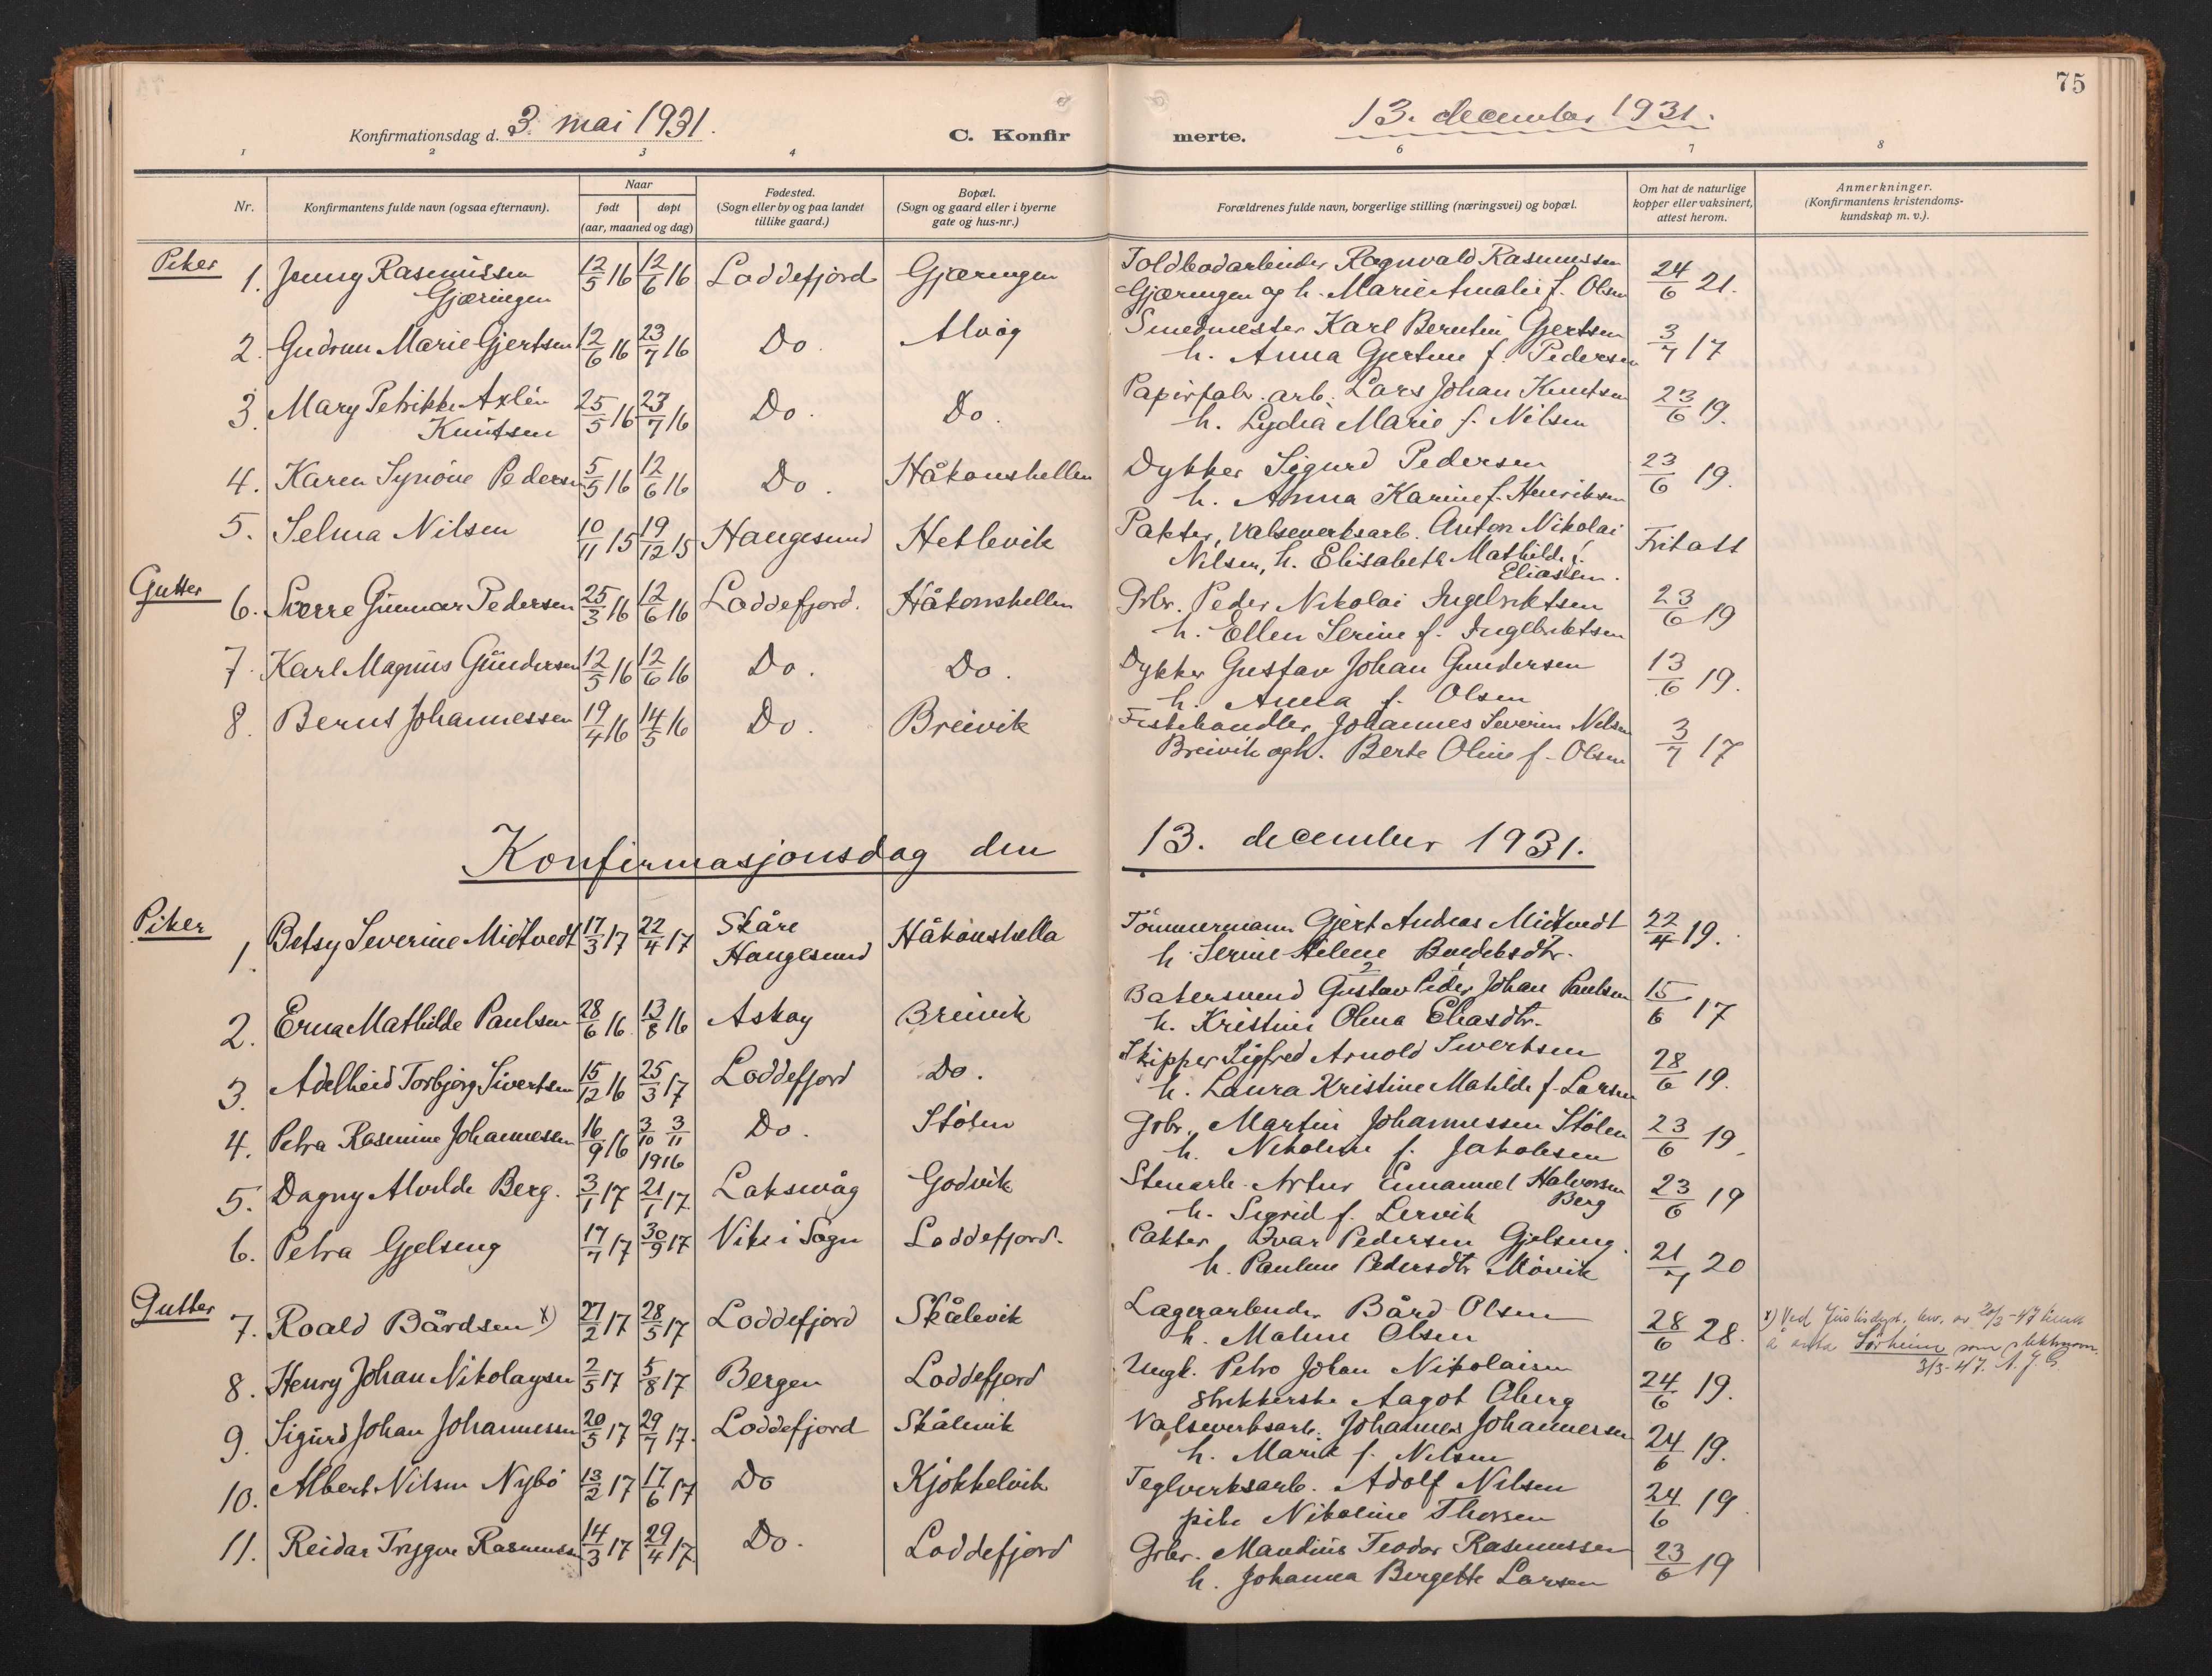 75
Konfirmationsdag d. 3. mai 1931. C. Konfirmerte. 13. december 1931.
1 2 3 4 6 7 8
Nr. Konfirmantens fulde navn (ogsaa efternavn). Naar født døpt (aar, maaned og dag) Fødested. (Sogn eller by og paa landet tillike gaard.) Bopæl. (Sogn og gaard eller i byerne gate og hus-nr.) Forældrenes fulde navn, borgerlige stilling (næringsvei) og bopæl. Om hat de naturlige kopper eller vaksinert, attest herom. Anmerkninger. (Konfirmantens kristendomskundskap m. v.).
Piker
1. Jenny Rasmussen Gjæringen 12/5 16 12/6 16 Loddefjord Gjæringen Toldbodarbeider Ragnvald Rasmussen Gjæringen og h. Marie Amalie f. Olsen 24/6 21.
2. Gudrun Marie Gjertsen 12/6 16 23/7 16 Do. Alvåg Smedmester Karl Berntin Gjertsen h. Anna Gjertine f. Pedersen 3/7 17
3. Mary Petrikke Axlin Knutsen 25/5 16 23/7 16 Do. Do. Papirfabr. arb. Lars Johan Knutsen h. Lydia Marie f. Nilsen 23/6 19.
4. Karen Synöve Pedersen 5/5 16 12/6 16 Do. Håkonshellen Dykker Sigurd Pedersen h. Anna Karine f. Henriksen 23/6 19.
5. Selma Nilsen 10/11 15 19/12 15 Haugesund Hetlevik Pakter, Valseverksarb. Anton Nikolai Nilsen, h. Elisabeth Mathilde f. Eliassen. Fritatt
Gutter
6. Sverre Gunnar Pedersen 25/3 16 12/6 16 Loddefjord. Håkonshellen Grbr. Peder Nikolai Ingebriktsen h. Ellen Serine f. Ingebriktsen 23/6 19
7. Karl Magnus Gundersen 12/5 16 12/6 16 Do. Do. Dykker Gustav Johan Gundersen h. Anna f. Olsen 13/6 19.
8. Bernt Johannessen 19/4 16 14/5 16 Do. Breivik Fiskehandler Johannes Severin Nilsen Breivik og h. Berte Oline f. Olsen 3/7 17
Konfirmasjonsdag den 13. december 1931.
Piker
1. Betsy Severine Midtvedt 17/3 17 22/4 17 Skåre Haugesund Håkonshella Tömmermann Gjert Andreas Midtvedt h. Serine Helene 22/4 19.
2. Erna Mathilde Paulsen 28/6 16. 13/8 16 Askøy Breivik Bakersvend Gustav Peder Johan Paulsen h. Kristine Olina Eliasdtr. 15/6 17
3. Adelheid Torbjørg Sivertsen 15/12 16 25/3 17 Loddefjord Do. Skipper Sigfred Arnold Sivertsen h. Laura Kristine Matilde f. Larsen 28/6 19.
4. Petra Rasmine Johannessen 16/9 16 3/10 3/11 1916 Do. Stölen Grbr. Martin Johannessen Stölen h. Nikoline f. Jakobsen 23/6 19.
5. Dagny Alvilde Berg. 3/1 17 21/1 17. Laksevåg Godvik Stenarb. Artur Emanuel Halvorsen Berg h. Sigrid f. Lervik 23/6 19
6. Petra Gjelseng 17/7 17 30/9 17 Vik i Sogn Loddefjord. Pakter Ivar Pedersen Gjelseng. h. Pauline Pedersdtr Mövik 21/7 20
Gutter
7. Roald Bårdsen x) 27/2 17 28/5 17 Loddefjord Skålevik Lagerarbeider Bård Olsen h. Maline Olsen 28/6 28. x) Ved Justisdept. bev. av 20/2-47 å anta Sörheim som slektsnavn. 3/3-47. A. J. G.
8. Henry Johan Nikolaysen 2/5 17 5/8 17 Bergen Loddefjord Ungk. Petro Johan Nikolaisen Strikkerske Aagot Åberg 24/6 19.
9. Sigurd Johan Johannessen 20/5 17 29/7 17. Loddefjord Skålevik Valseverksarb. Johannes Johannessen h. Marie f. Nilsen 24/6 19.
10. Albert Nilsen Nybö 13/2 17 17/6 17 Do Kjökkelvik Teglverksarb. Adolf Nilsen pike Nikoline Thorsen 24/6 19
11. Reidar Trygve Rasmussen 14/3 17 29/4 17. Do. Loddefjord Grbr. Mandius Teodor Rasmussen h. Johanna Bergette Larsen 23/6 19